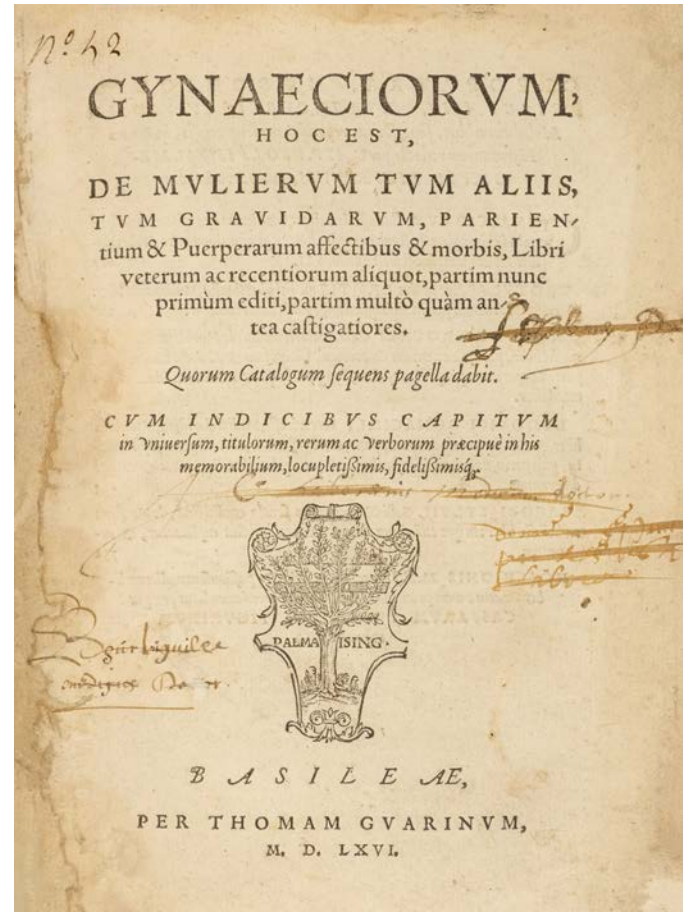 Nº 42
GYNAECIORVM,
HOC EST,
DE MVLIERVM TVM ALIIS,
TVM GRAVIDARVM, PARIEN-
tium & Puerperarum affectibus & morbis, Libri
veterum ac recentiorum aliquot, partim nunc
primùm editi, partim multò quàm an-
tea castigatiores.
Quorum Catalogum sequens pagella dabit.
CVM INDICIBVS CAPITVM
in vniuersum, titulorum, rerum ac verborum præcipuè in his
memorabilium, locupletißimis, fidelißimisq́;.
PALMA ISING.
BASILEAE,
PER THOMAM GVARINVM,
M. D. LXVI.